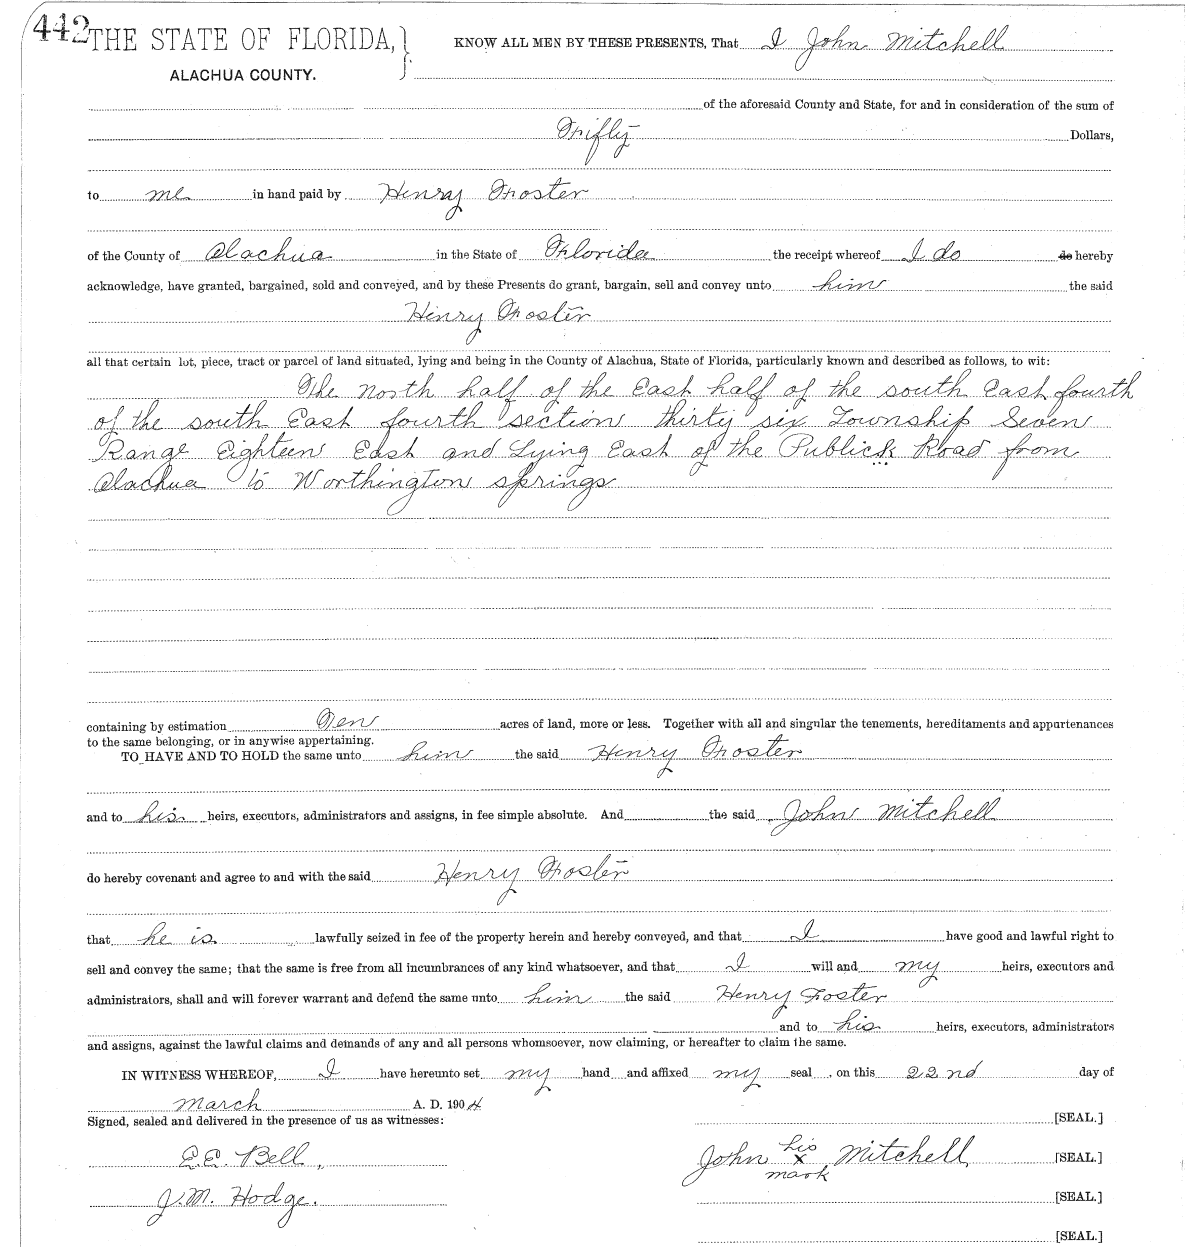 442 THE STATE OF FLORIDA, } KNOW ALL MEN BY THESE PRESENTS, That I John Mitchell
ALACHUA COUNTY.
of the aforesaid County and State, for and in consideration of the sum of
Fifty Dollars,
to me in hand paid by Henry Foster
of the County of Alachua in the State of Florida the receipt whereof I do do hereby
acknowledge, have granted, bargained, sold and conveyed, and by these Presents do grant, bargain, sell and convey unto him the said
Henry Foster
all that certain lot, piece, tract or parcel of land situated, lying and being in the County of Alachua, State of Florida, particularly known and described as follows, to wit:
The north half of the East half of the south East fourth
of the south East fourth section thirty six Township Seven
Range Eighteen East and Lying East of the Publick Road from
Alachua to Worthington springs
containing by estimation Ten acres of land, more or less. Together with all and singular the tenements, hereditaments and appurtenances
to the same belonging, or in anywise appertaining.
TO HAVE AND TO HOLD the same unto him the said Henry Foster
and to his heirs, executors, administrators and assigns, in fee simple absolute. And the said John Mitchell
do hereby covenant and agree to and with the said Henry Foster
that he is lawfully seized in fee of the property herein and hereby conveyed, and that I have good and lawful right to
sell and convey the same; that the same is free from all incumbrances of any kind whatsoever, and that I will and my heirs, executors and
administrators, shall and will forever warrant and defend the same unto him the said Henry Foster
and to his heirs, executors, administrators
and assigns, against the lawful claims and demands of any and all persons whomsoever, now claiming, or hereafter to claim the same.
IN WITNESS WHEREOF, I have hereunto set my hand and affixed my seal, on this 22nd day of
March A. D. 1904
Signed, sealed and delivered in the presence of us as witnesses: [SEAL.]
his
E.E. Bell, John x Mitchell [SEAL.]
mark
J.M. Hodge. [SEAL.]
[SEAL.]